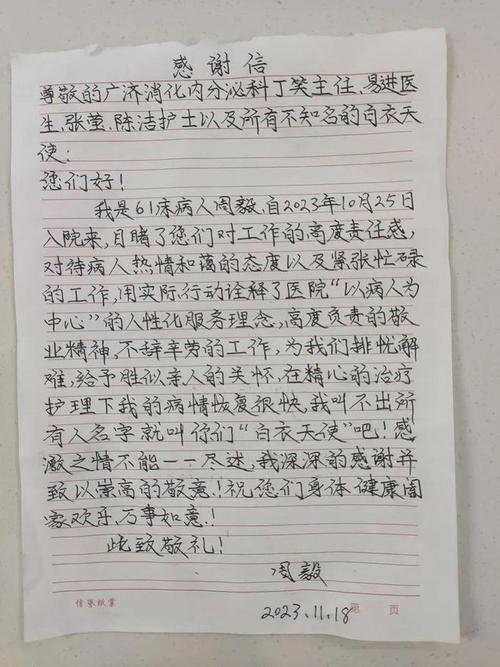 感谢信
尊敬的广济消化内分泌科丁笑主任、易进医
生、张莹、陈洁护士以及所有不知名的白衣天
使：
您们好！
我是61床病人周毅,自2023年10月25日
入院来,目睹了您们对工作的高度责任感,
对待病人热情和蔼的态度以及紧张忙碌
的工作,用实际行动诠释了医院“以病人为
中心”的人性化服务理念,高度负责的敬
业精神,不辞辛劳的工作,为我们排忧解
难,给予胜似亲人的关怀,在精心的治疗
护理下我的病情恢复很快,我叫不出所
有人名字就叫你们“白衣天使”吧！感
激之情不能一一尽述,我深深的感谢并
致以崇高的敬意！祝您们身体健康阖
家欢乐,万事如意！
此致敬礼！
周毅
2023.11.18
信誉纸业 第 页